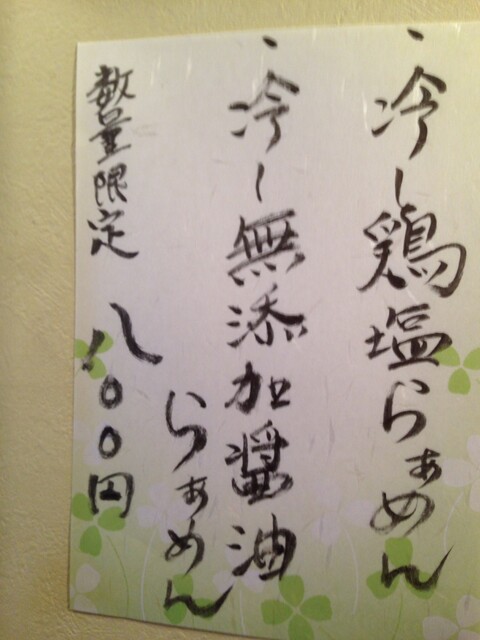 ・冷し鶏塩らぁめん
・冷し無添加醤油
らぁめん
数量限定 八〇〇円